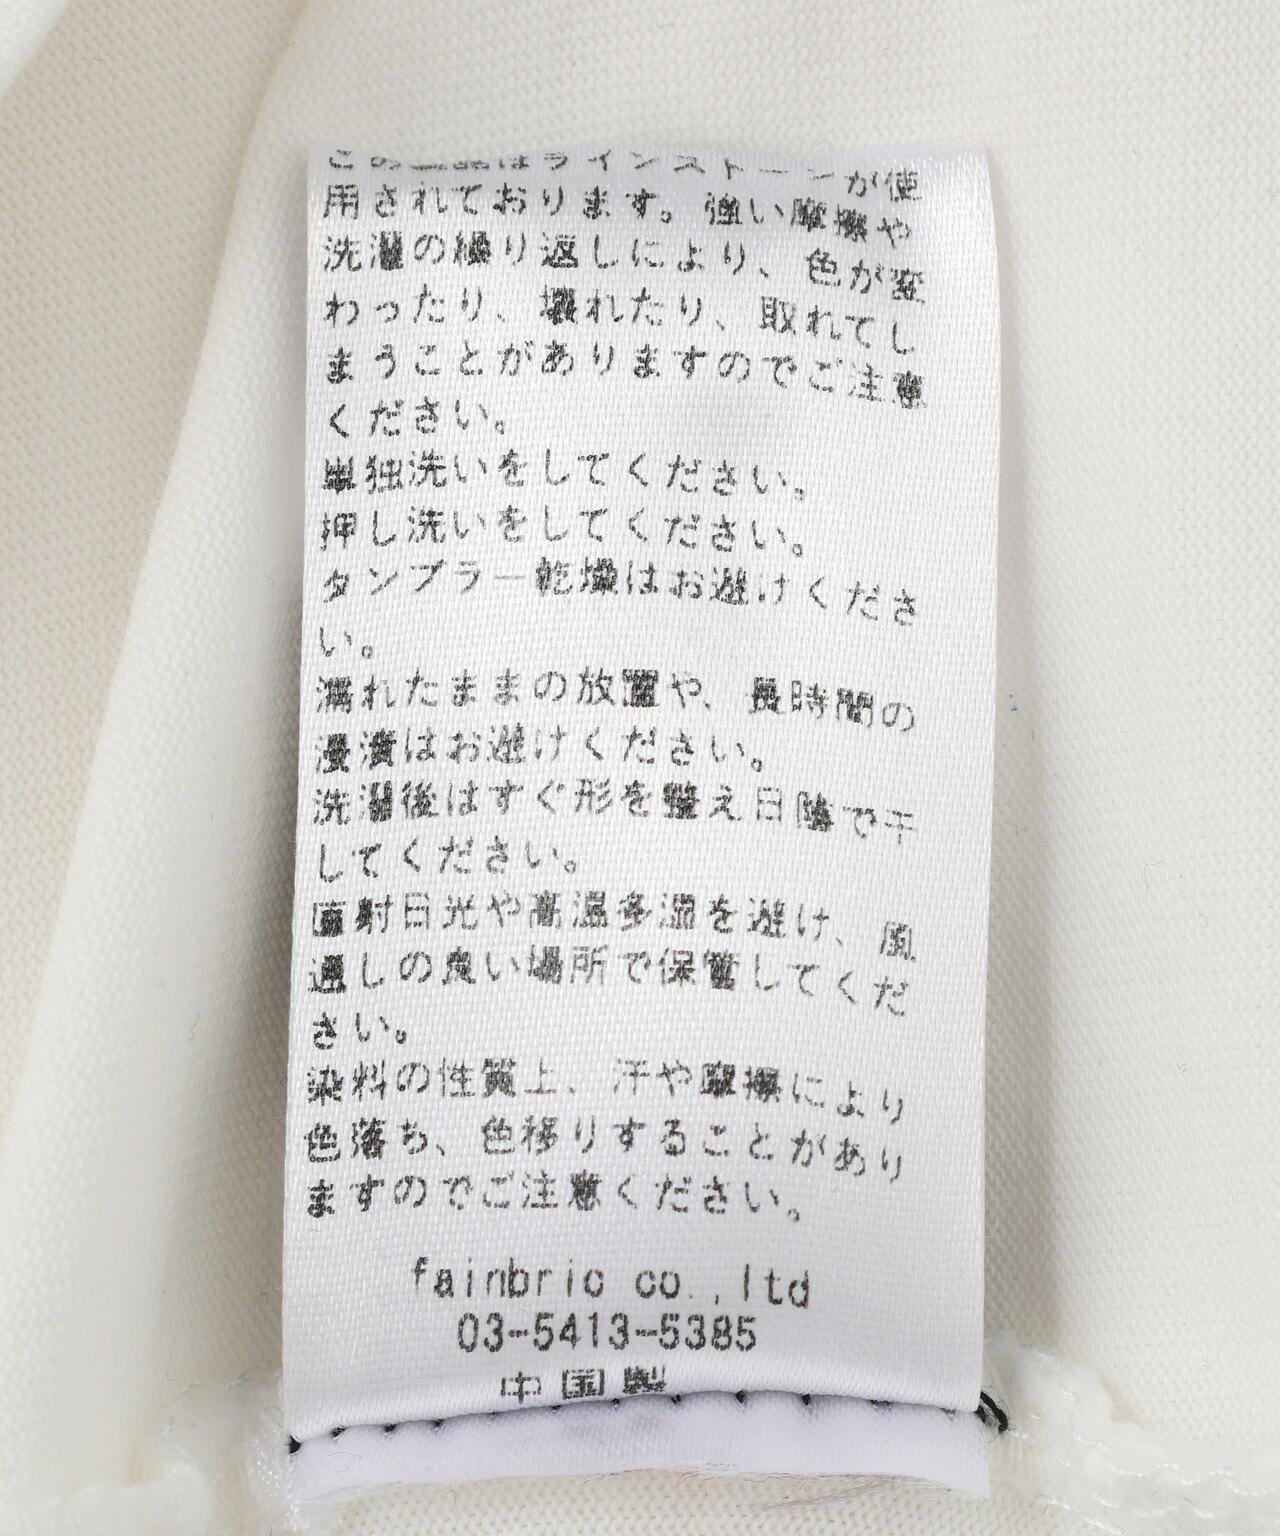 この工品はラインストーンが使
用されております。強い摩擦や
洗濯の繰り返しにより、色が変
わったり、壊れたり、取れてし
まうことがありますのでご注意
ください。
単独洗いをしてください。
押し洗いをしてください。
タンブラー乾燥はお避けくださ
い。
濡れたままの放置や、長時間の
浸漬はお避けください。
洗濯後はすぐ形を整え日陰で干
してください。
直射日光や高温多湿を避け、風
通しの良い場所で保管してくだ
さい。
染料の性質上、汗や摩擦により
色落ち、色移りすることがあり
ますのでご注意ください。
fainbric co.,ltd
03-5413-5385
中国製